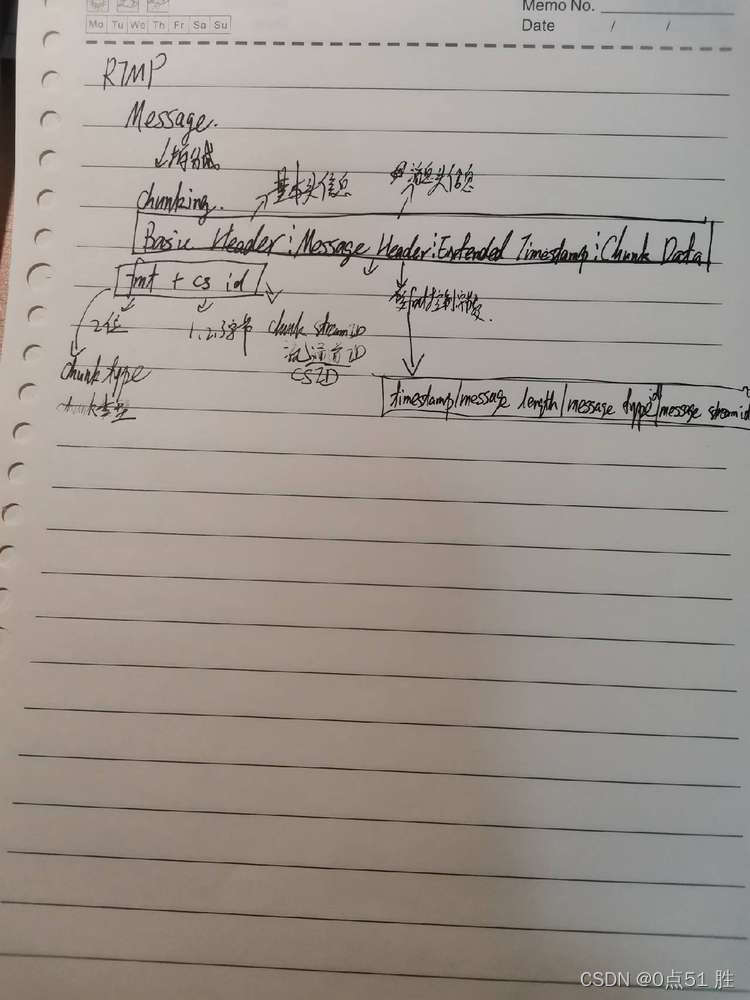 Memo No.
Date / /
Mo Tu We Th Fr Sa Su
RTMP
Message.
拆分成
chunking.
基本头信息
消息头信息
Basic Header Message Header Extended Timestamp Chunk Data
fmt + cs id
2位
1,2,3字节
chunk stream ID
流通道ID
CSID
受fmt控制
chunk type
类型
timestamp message length message type id message stream id
CSDN @0点51 胜